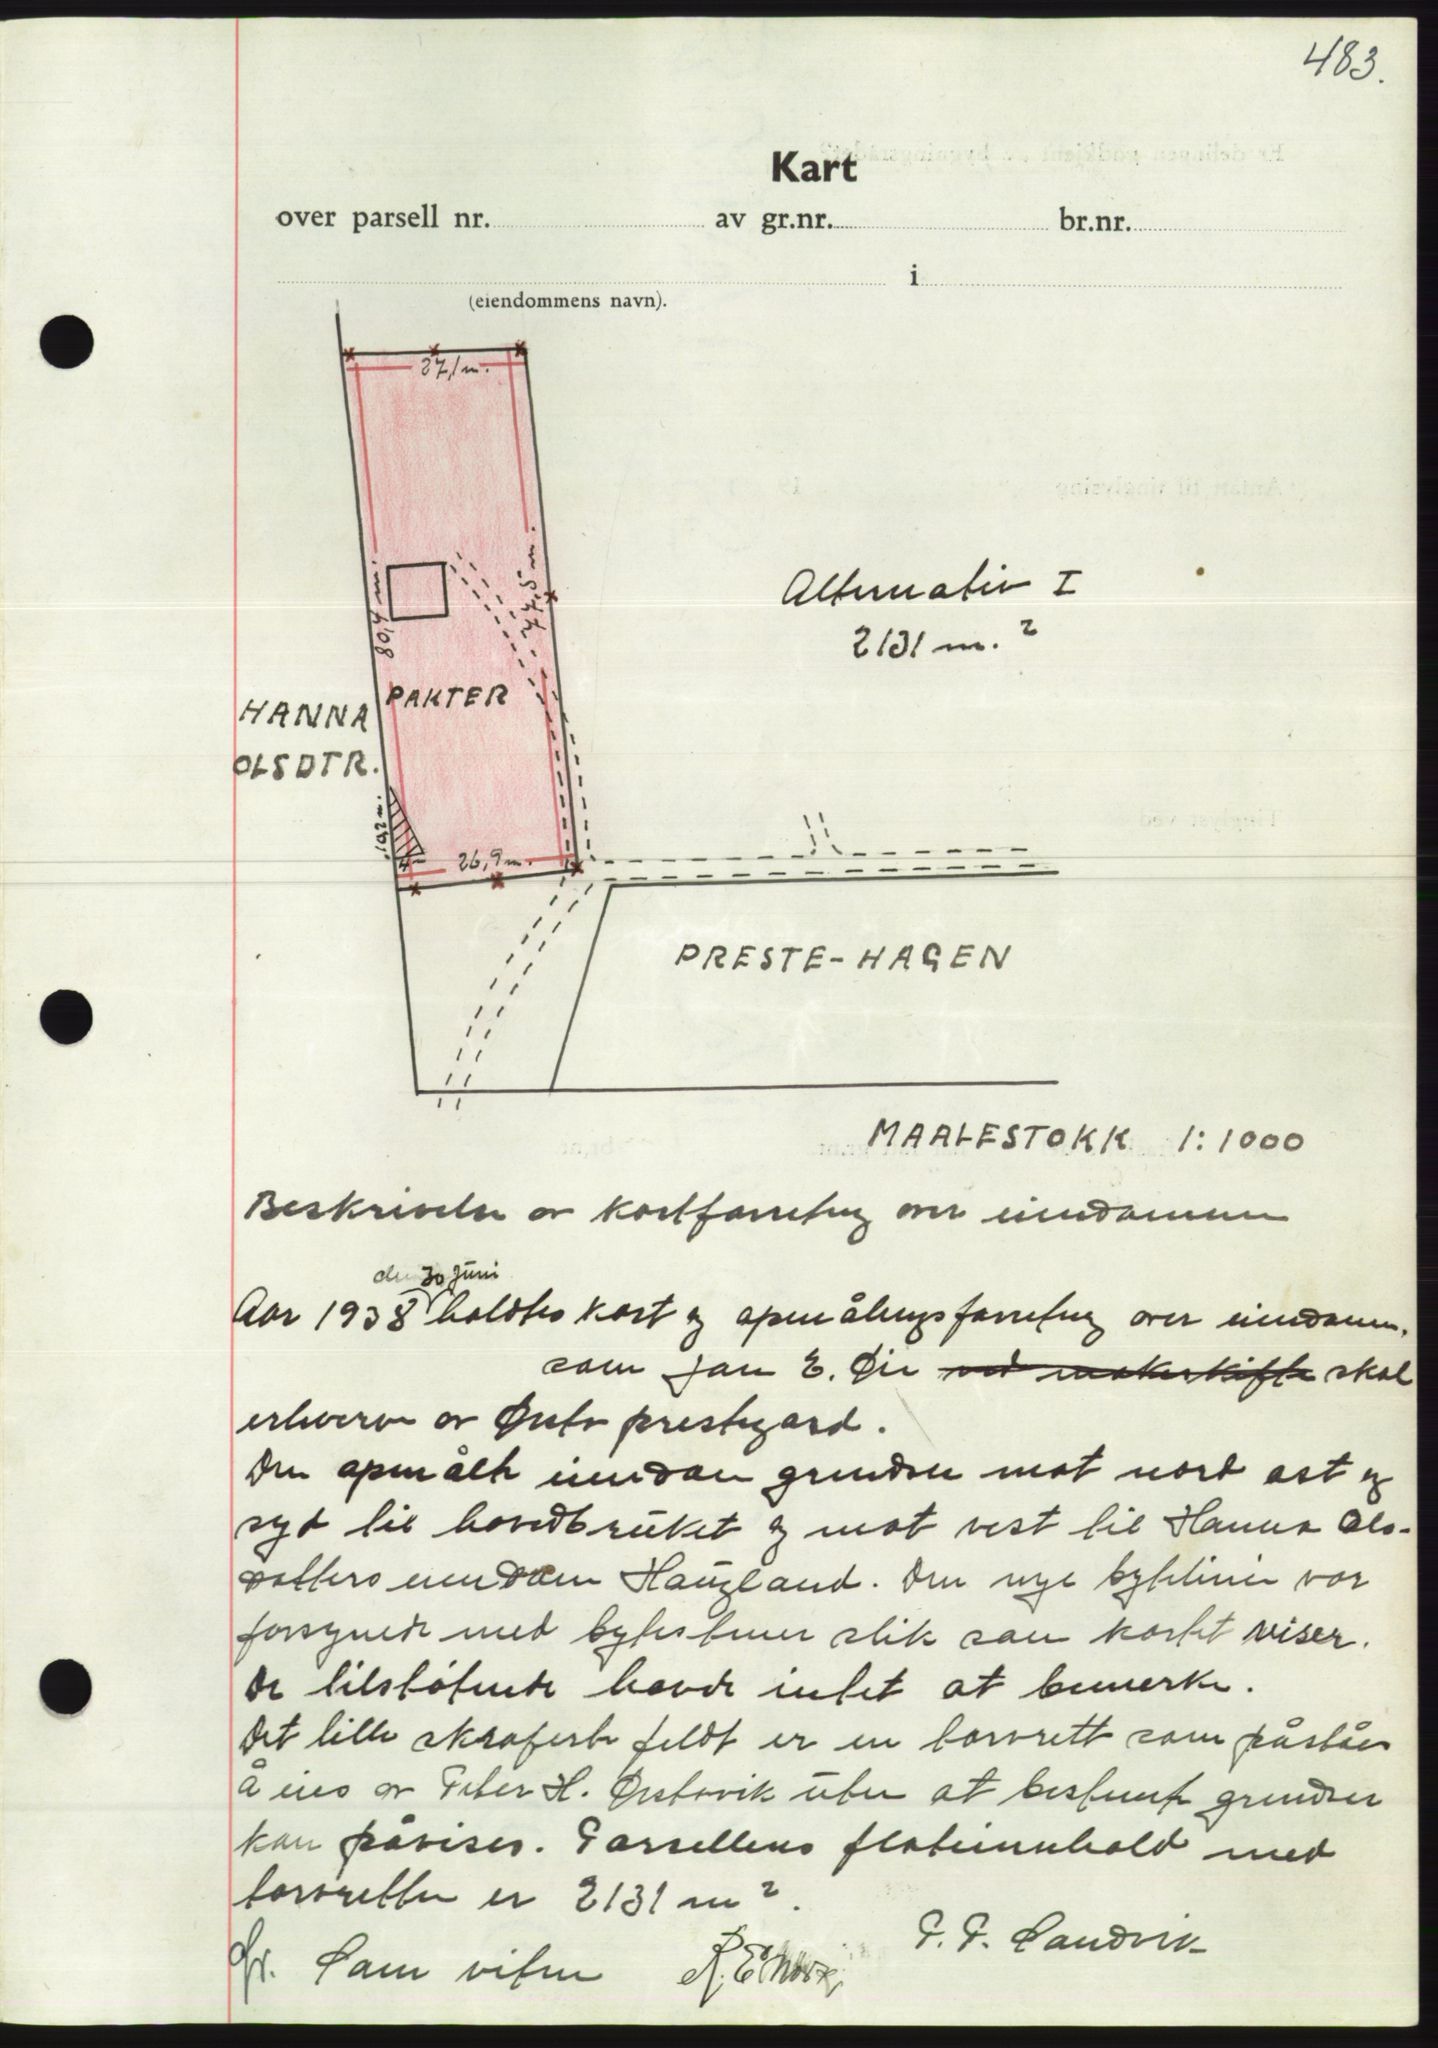 483.
Kart
over parsell nr. av gr.nr. br.nr.
i
(eiendommens navn).
27,1 m.
80,4 m.
77,5 m.
Alternativ I
2131 m.²
HANNA
OLSDTR.
PAKTER
10,2 m.
4 m
26,9 m.
PRESTE-HAGEN
MAALESTOKK 1:1000
Beskrivelse av kartforretng over eiendommen
den 30 juni
Aar 1938 holdtes kart og opmålingsforretng over eiendomm.
som Jan E. Øie ved makeskifte skal
erhverve av Ørsta prestegard.
Den opmålte eiendom grendser mot nord ost og
syd til hovedbruket og mot vest til Hanna Ols-
dotters eiendom Haugland. Den nye bytelinie var
forsynede med bytesteiner slik som kartet viser.
De tilstøtende havde intet at bemerke.
Det lille skraferte feldt er en torvrett som påståes
å eies av Peter H. Ørstavik uten at bestemte grendser
kan påvises. Parsellens flateinnhold med
torvretten er 2131 m².
P. P. Sandvik
Som vitne